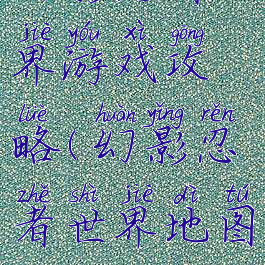 jiè yóu xì gōng
界游戏攻
lüè huàn yǐng rěn
略(幻影忍
zhě shì jiè dì tú
者世界地图